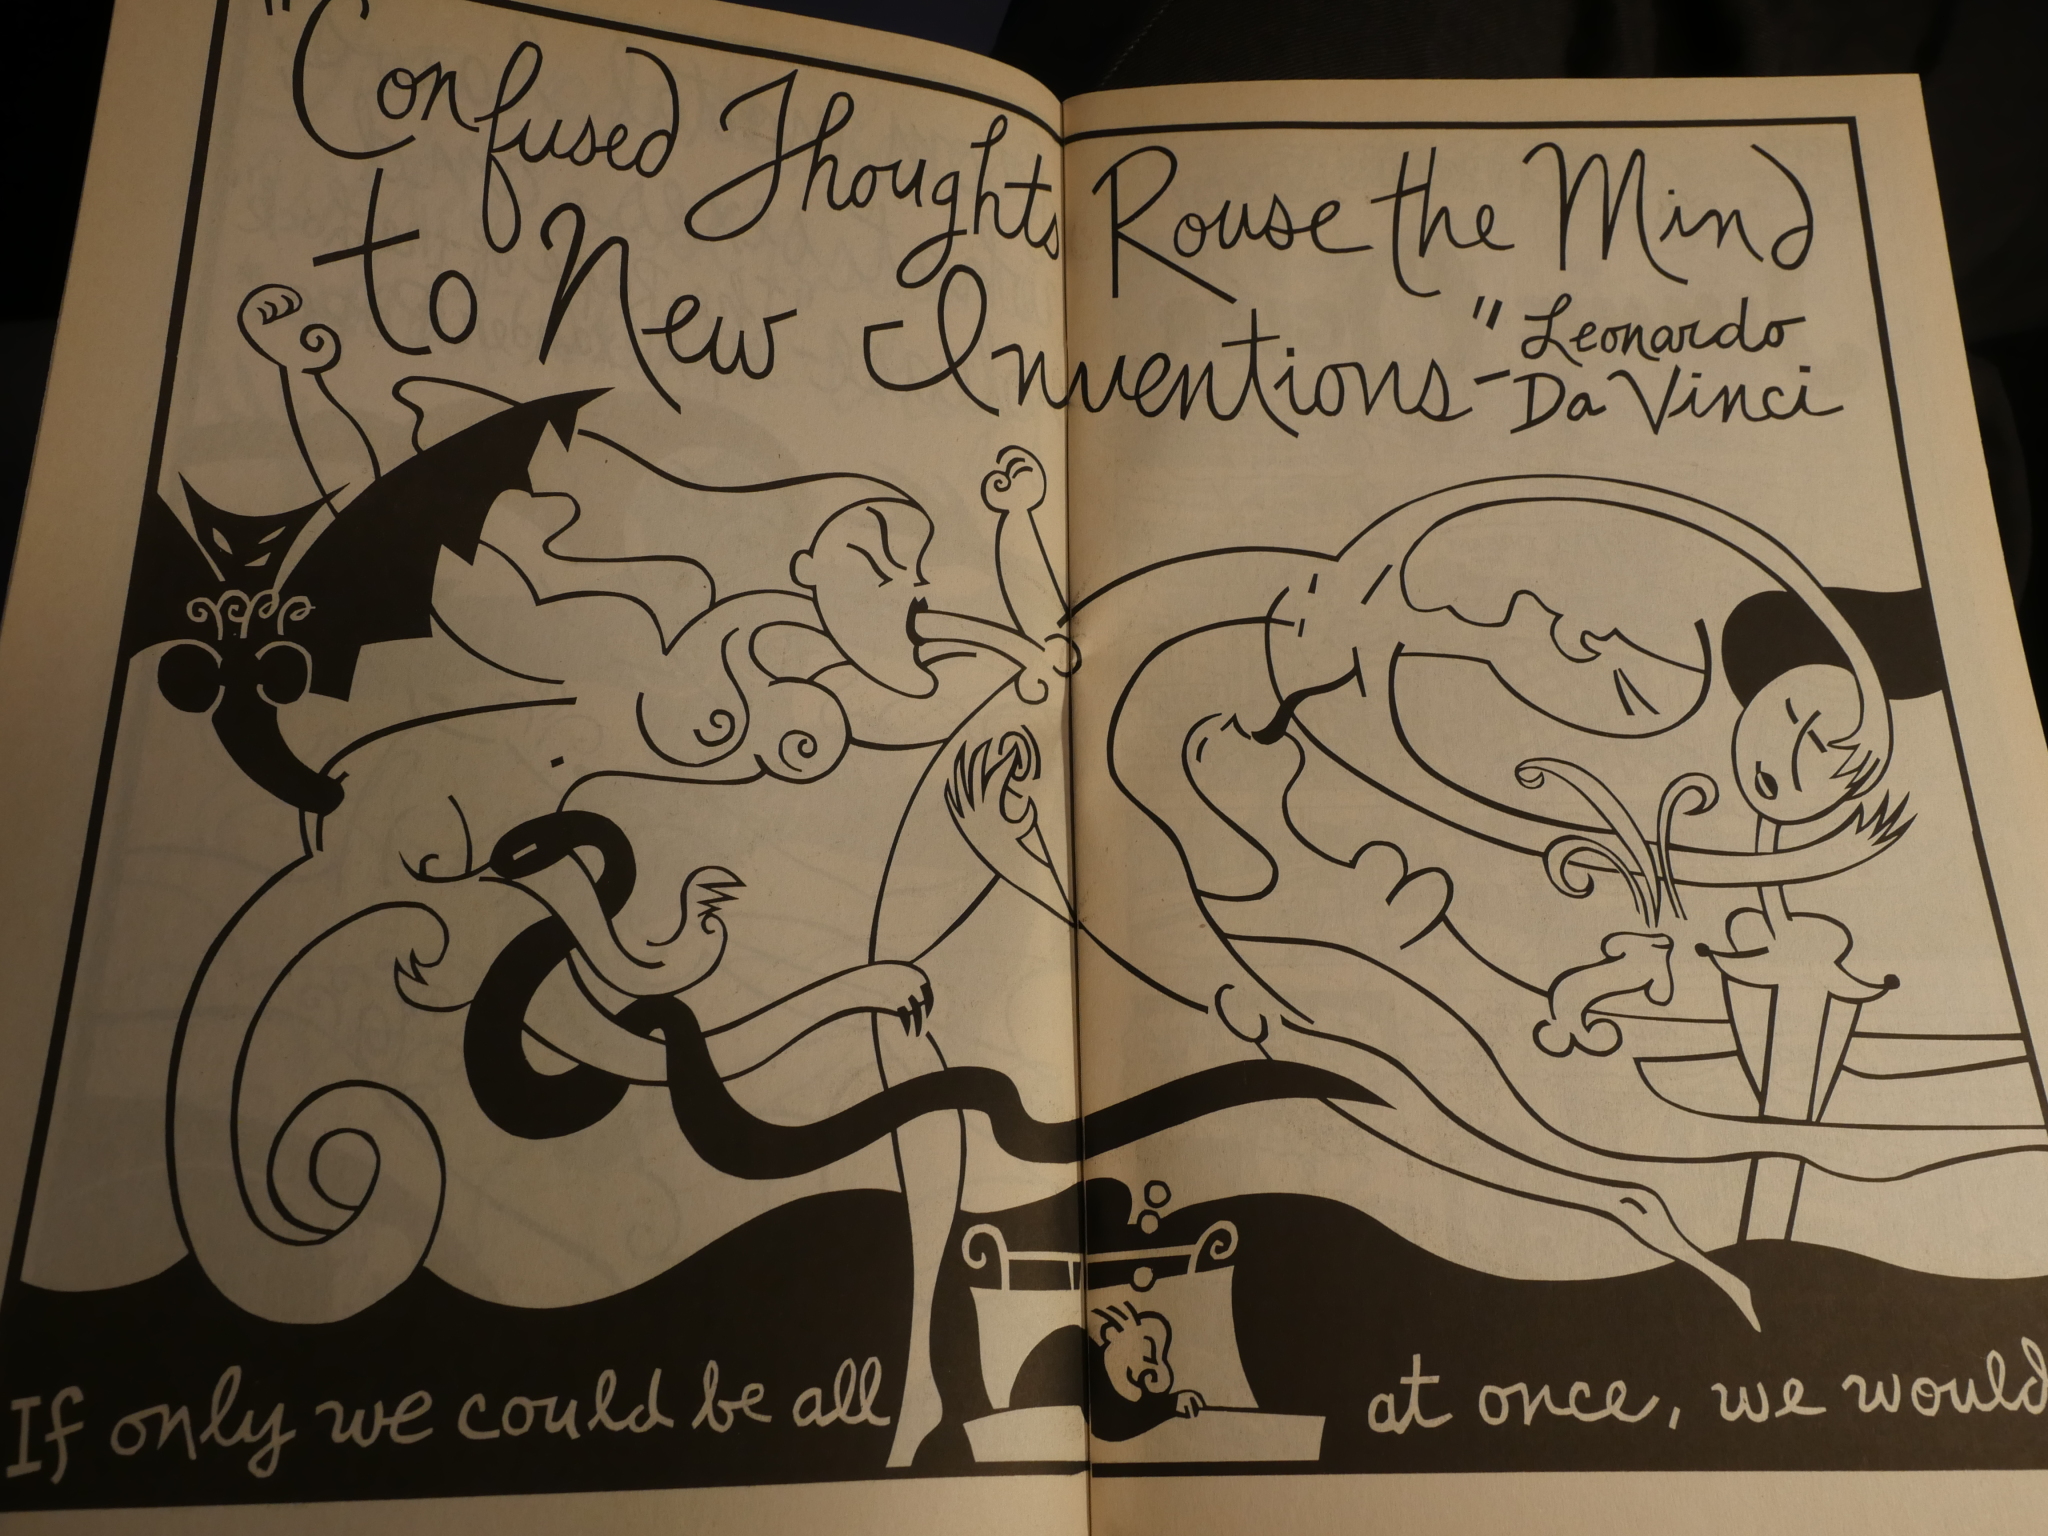 "Confused Thoughts Rouse the Mind
to New Inventions" - Leonardo
Da Vinci
If only we could be all at once, we would